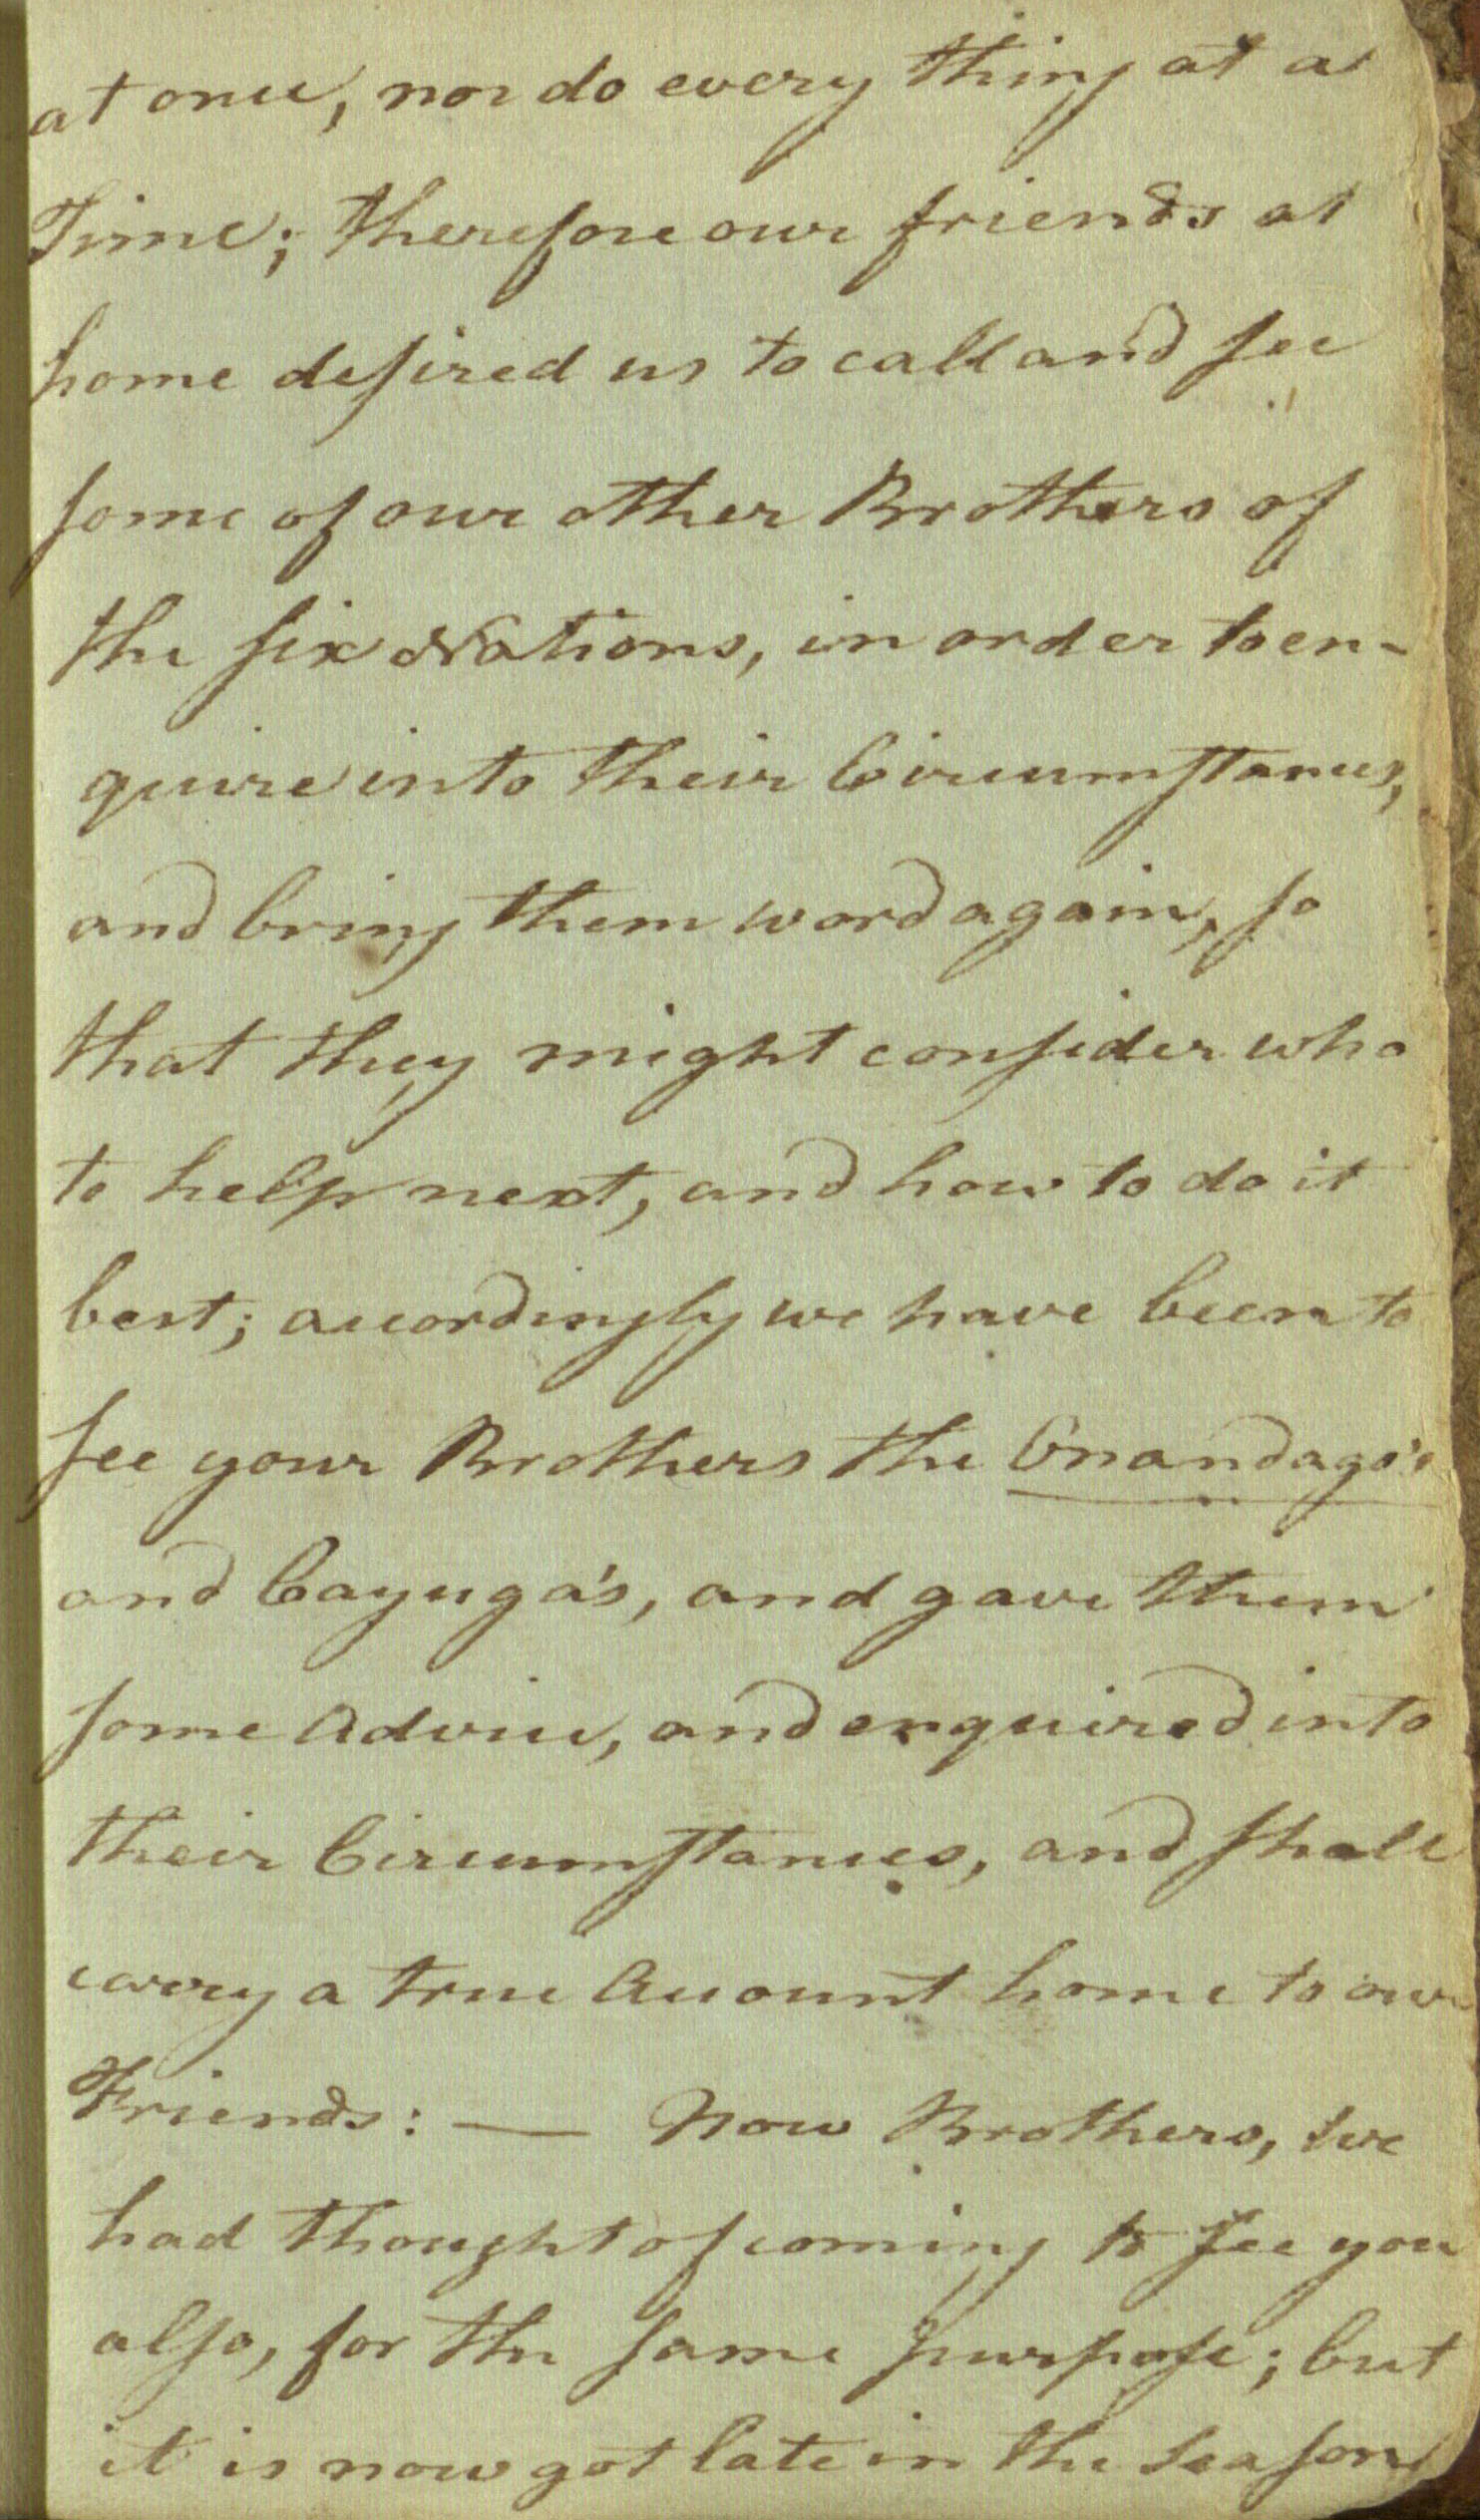 at once, nor do every thing at a
Time; therefore our friends at
home desired us to call and see
some of our other Brothers of
the six Nations, in order to en-
quire into their Circumstances,
and bring them word again, so
that they might consider who
to help next, and how to do it
best; accordingly we have been to
see your Brothers the Onandago's
and Cayuga's, and gave them
some Advice, and enquired into
their Circumstances, and shall
carry a true Account home to our
Friends: — Now Brothers, we
had thought of coming to see you
also, for the same purpose; but
it is now got late in the Season